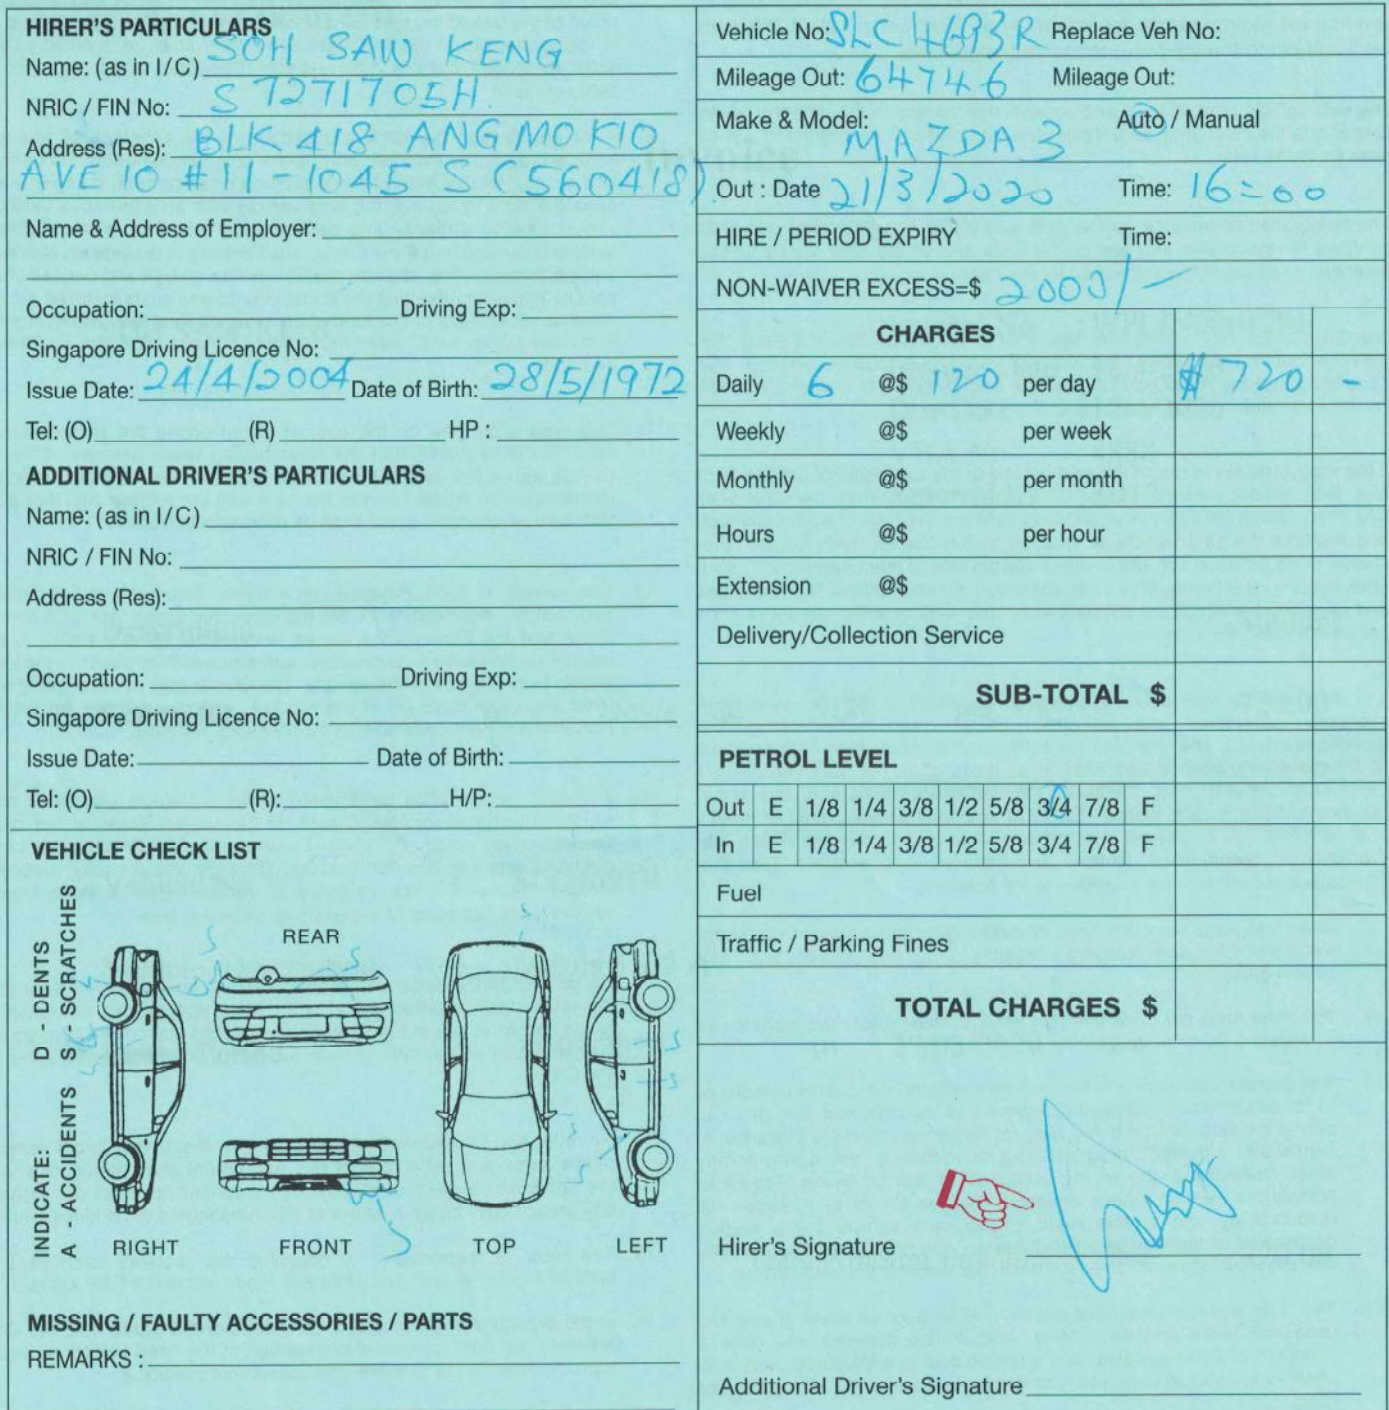 HIRER'S PARTICULARS
Name: (as in I/C) SOH SAW KENG
NRIC / FIN No: S7271705H
Address (Res): BLK 418 ANG MO KIO
AVE 10 #11-1045 S(560418)
Name & Address of Employer:
Occupation: Driving Exp:
Singapore Driving Licence No:
Issue Date: 24/4/2004 Date of Birth: 28/5/1972
Tel: (O) (R) HP :
ADDITIONAL DRIVER'S PARTICULARS
Name: (as in I/C)
NRIC / FIN No:
Address (Res):
Occupation: Driving Exp:
Singapore Driving Licence No:
Issue Date: Date of Birth:
Tel: (O) (R): H/P:
VEHICLE CHECK LIST
INDICATE: D - DENTS
A - ACCIDENTS S - SCRATCHES
REAR
RIGHT FRONT TOP LEFT
MISSING / FAULTY ACCESSORIES / PARTS
REMARKS :
Vehicle No: SLC4693R Replace Veh No:
Mileage Out: 64746 Mileage Out:
Make & Model: MAZDA 3 Auto / Manual
Out : Date 21/3/2020 Time: 16=00
HIRE / PERIOD EXPIRY Time:
NON-WAIVER EXCESS=$ 2000/-
CHARGES
Daily 6 @$ 120 per day $720 -
Weekly @$ per week
Monthly @$ per month
Hours @$ per hour
Extension @$
Delivery/Collection Service
SUB-TOTAL $
PETROL LEVEL
Out E 1/8 1/4 3/8 1/2 5/8 3/4 7/8 F
In E 1/8 1/4 3/8 1/2 5/8 3/4 7/8 F
Fuel
Traffic / Parking Fines
TOTAL CHARGES $
Hirer's Signature
Additional Driver's Signature